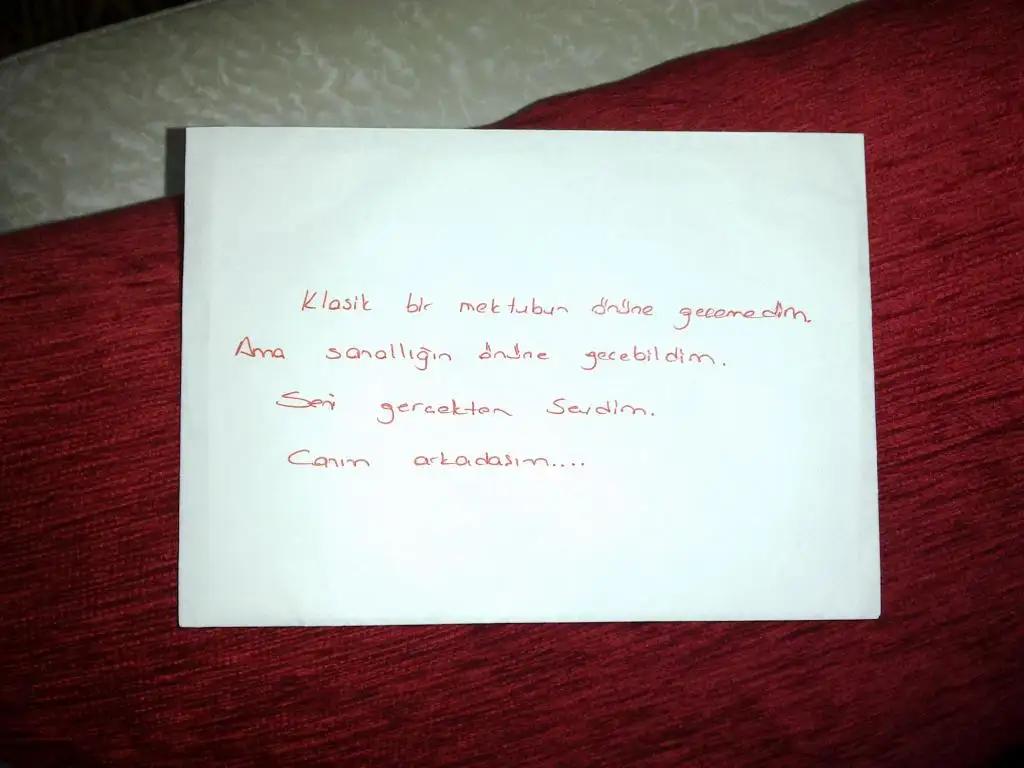 Klasik bir mektubun önüne gecemedim.
Ama sanallığın önüne gecebildim.
Seni gercekten Sevdim.
Canım arkadasım....